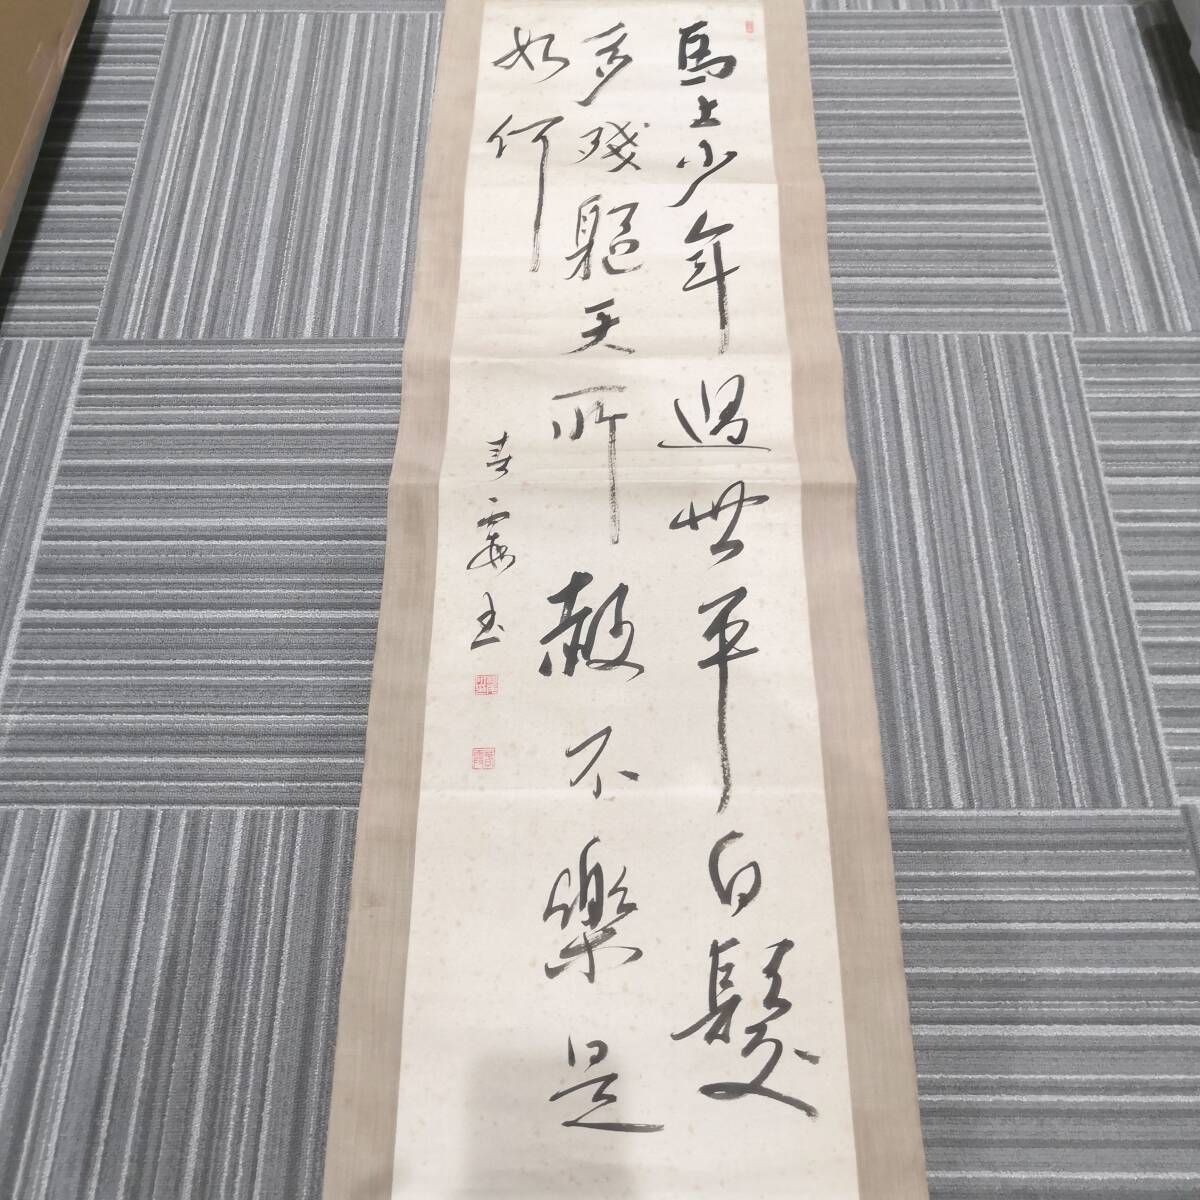 馬上少年過世平白髮
多残軀天所赦不樂是
如何
春霞書